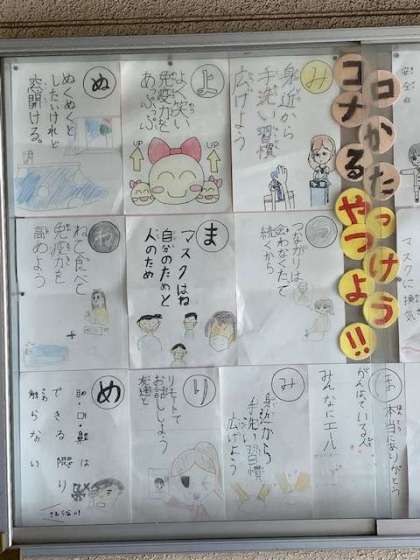 コロナかるたやっつけよう!!
み
身近から
手洗い習慣
広げよう
よ
よく笑い
免疫力を
あっぷっぷ
UP
UP
ぬ
ぬくぬくと
したいけれど
窓開ける。
マスクに換気
つ
つながりは
会わなくたって
続くから
ま
マスクはね
自分のためと
人のため
ね
ねて食べて
免疫力を
高めよう
ほ
本当にありがとう
がんばっている人
みんなにエール
み
身近から
手洗い習慣
広げよう
り
リモートで
お話ししよう
友達と
め
目・口・鼻は
できる限り
触らない